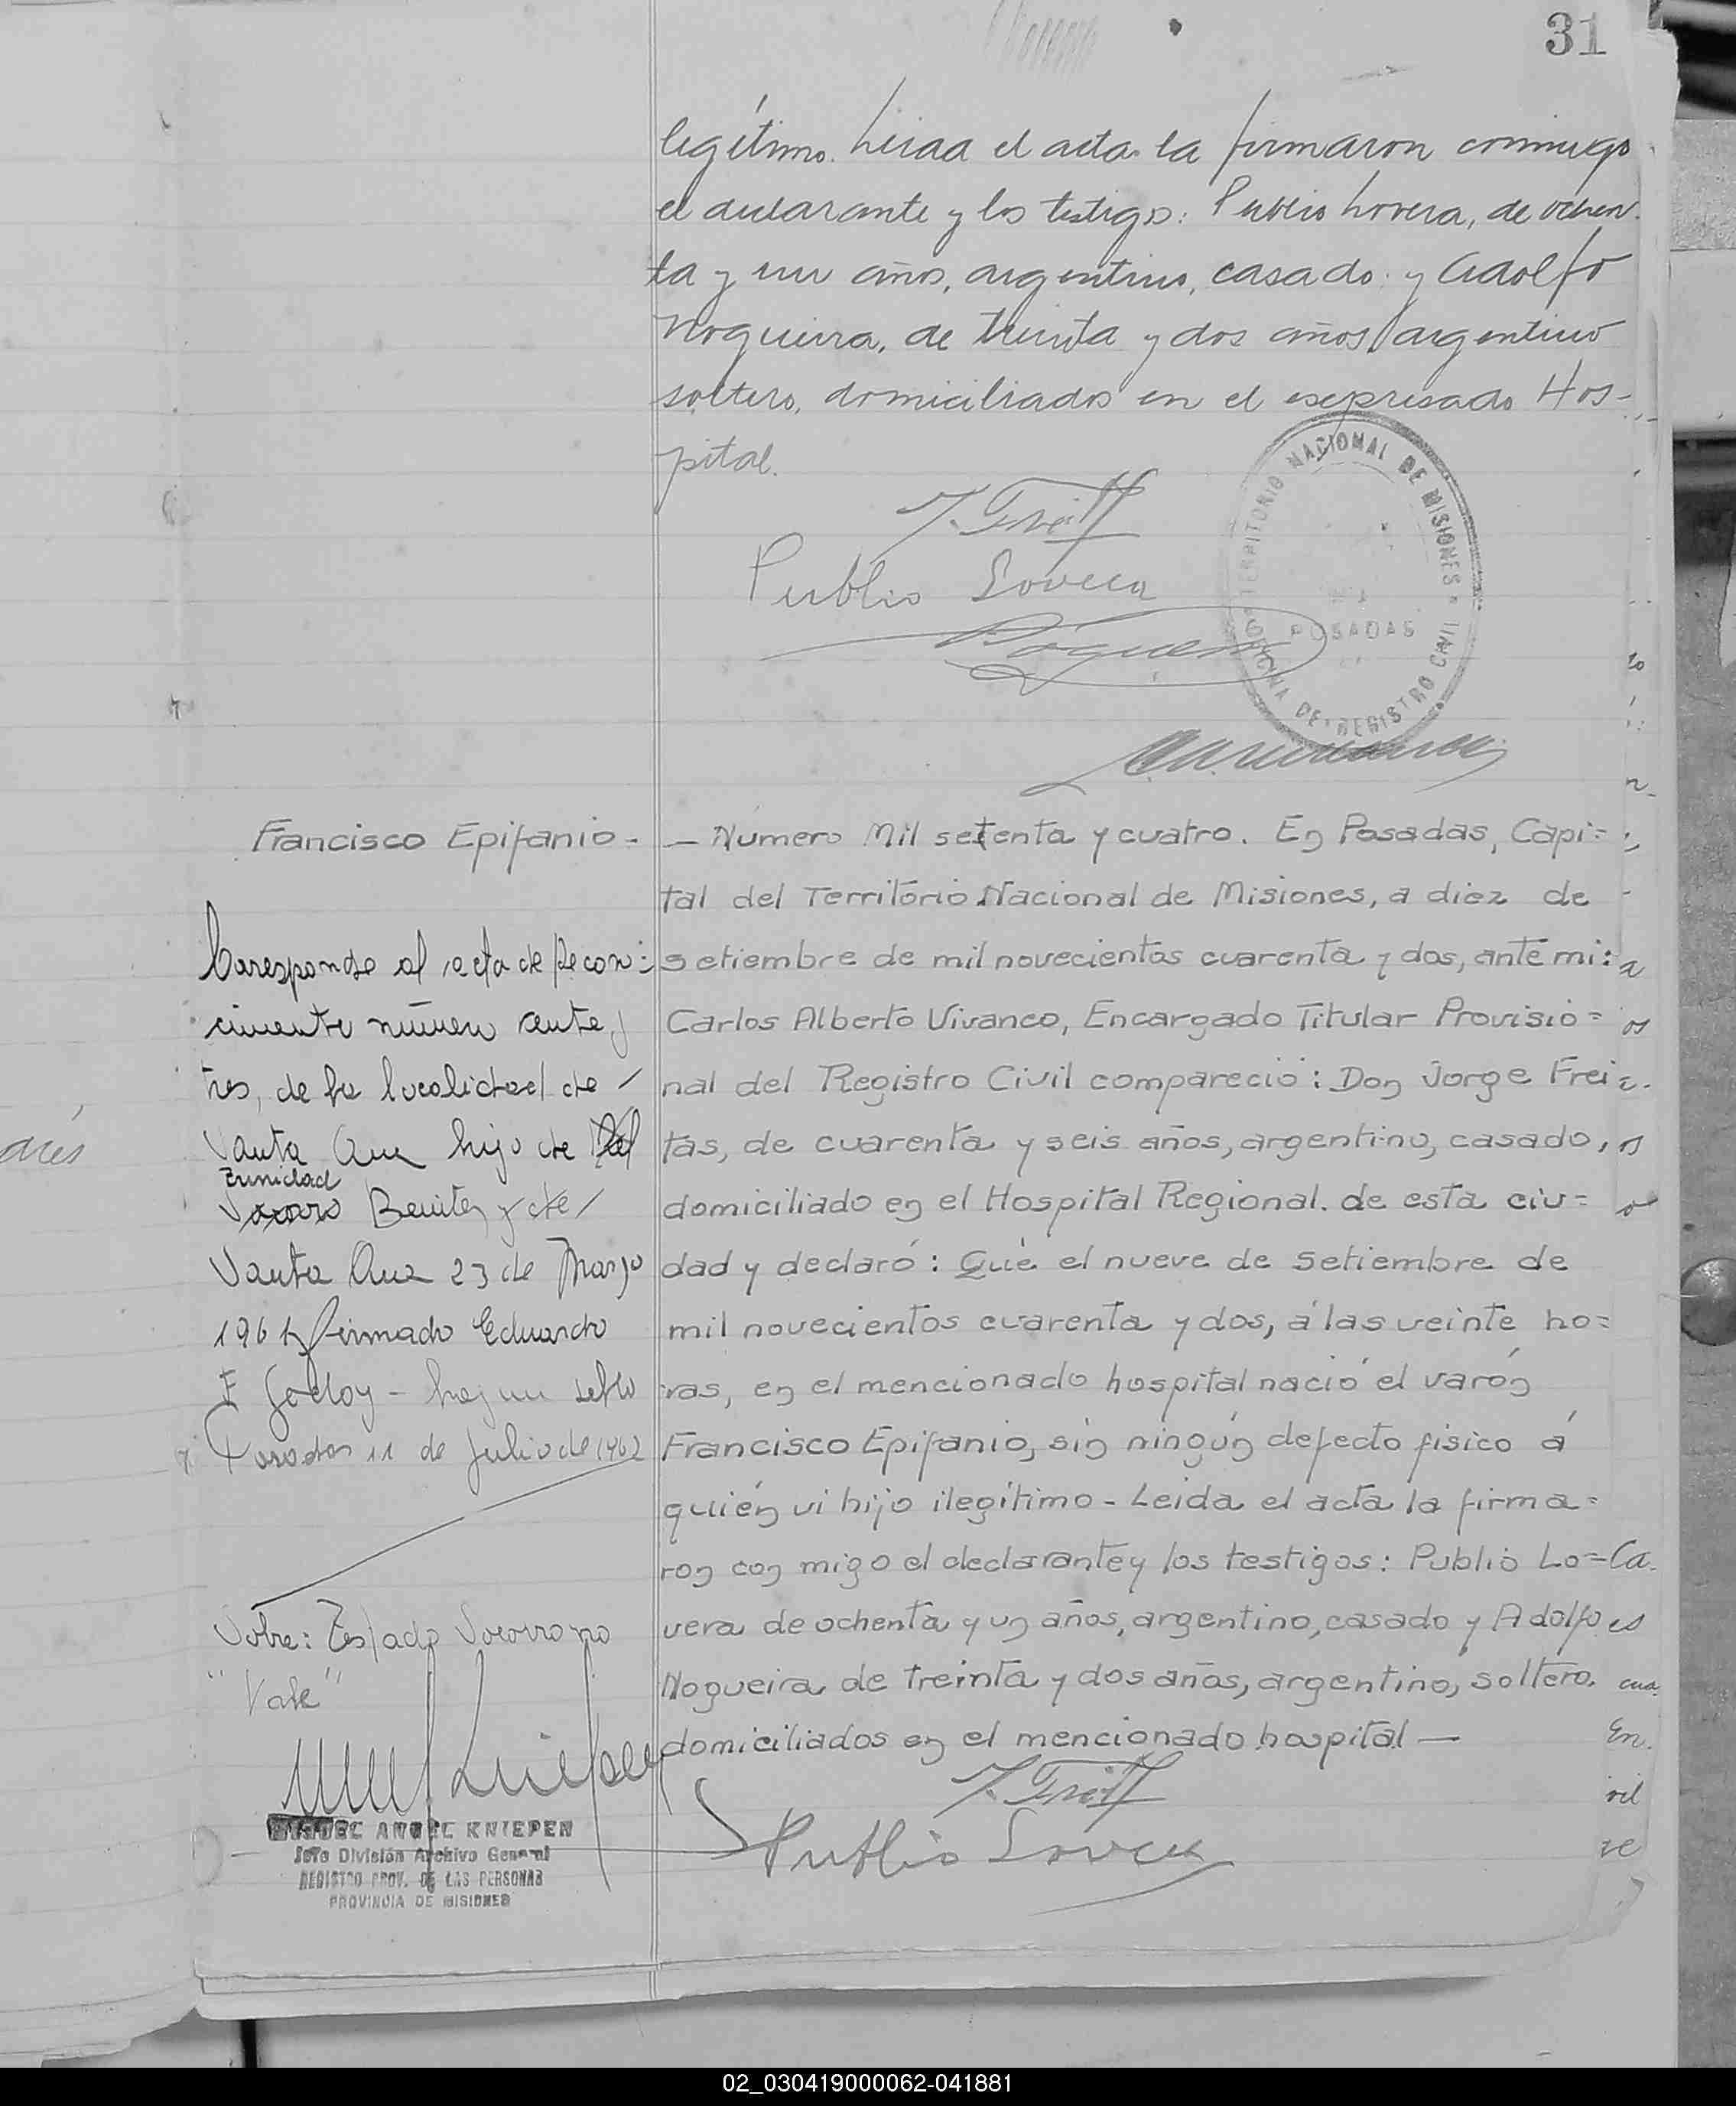 31
legítimo. Leida el acta la firmaron conmigo
el declarante y los testigos: Publio Lovera, de ochen-
ta y un años, argentino, casado y Adolfo
Nogueira, de treinta y dos años, argentino
soltero, domiciliados en el expresado Hos-
pital.
Publio Lovera
TERRITORIO NACIONAL DE MISIONES
POSADAS
OFICINA DE REGISTRO CIVIL
Francisco Epifanio -
Coresponde al acta de Recon-
cimento número ciento y
tres, de la localidad de
Santa Ana hijo de
Trinidad
Socorro Benitez y de
Santa Ana 23 de Marzo
1961 firmado Eduardo
E Godoy - hay un sello
Posadas 11 de Julio de 1962
Sobre: Testado Socorro no
"Vale"
MIGUEL ANGEL KNIEPEN
Jefe División Archivo General
REGISTRO PROV. DE LAS PERSONAS
PROVINCIA DE MISIONES
— Número Mil setenta y cuatro. En Posadas, Capi=
tal del Territorio Nacional de Misiones, a diez de
setiembre de mil novecientos cuarenta y dos, ante mi:
Carlos Alberto Vivanco, Encargado Titular Provisio=
nal del Registro Civil compareció: Don Jorge Frei=
tas, de cuarenta y seis años, argentino, casado,
domiciliado en el Hospital Regional. de esta ciu=
dad y declaró: Qué el nueve de setiembre de
mil novecientos cuarenta y dos, á las veinte ho=
ras, en el mencionado hospital nació el varón
Francisco Epifanio, sin ningún defecto fisico á
quién vi hijo ilegítimo - Leida el acta la firma=
ron con migo el declarante y los testigos: Publio Lo=
vera de ochenta y un años, argentino, casado y Adolfo
Nogueira de treinta y dos años, argentino, soltero.
domiciliados en el mencionado hospital —
Publio Lovera
02_030419000062-041881